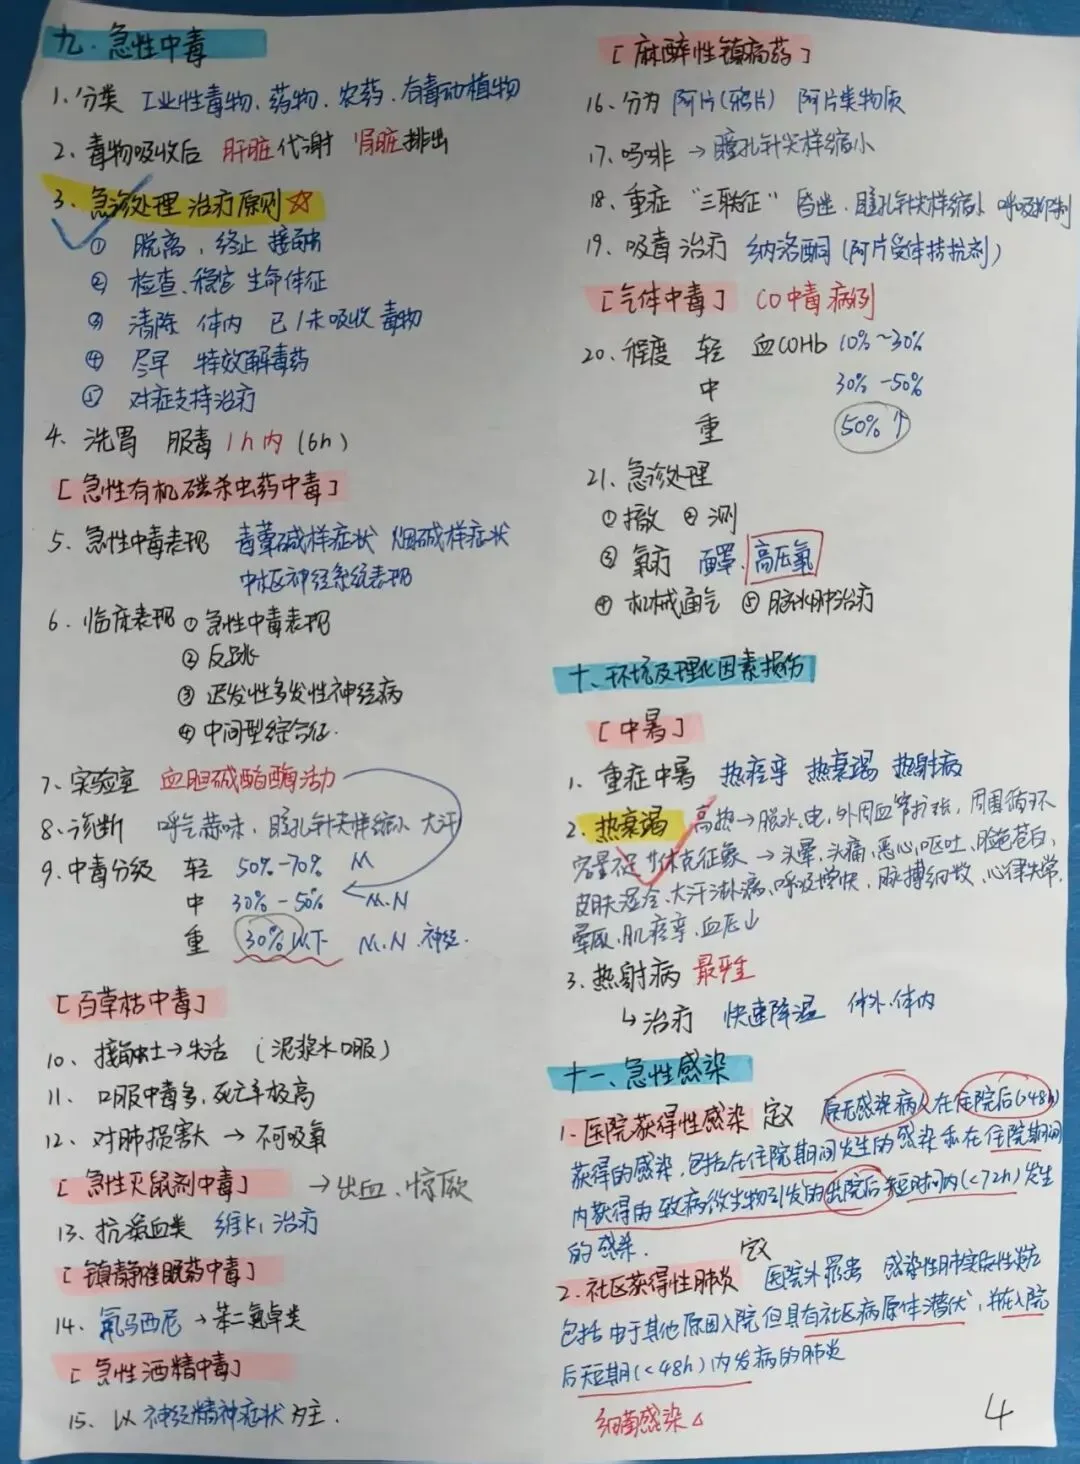 九.急性中毒
1.分类 工业性毒物、药物、农药、有毒动植物
2.毒物吸收后 肝脏代谢 肾脏排出
3.急诊处理 治疗原则☆
① 脱离、终止 接触
② 检查、稳定 生命体征
③ 清除 体内 已/未吸收 毒物
④ 尽早 特效解毒药
⑤ 对症支持治疗
4.洗胃 服毒 1h内 (6h)
[急性有机磷杀虫药中毒]
5.急性中毒表现 毒蕈碱样症状 烟碱样症状
中枢神经系统表现
6.临床表现 ①急性中毒表现
②反跳
③迟发性多发性神经病
④中间型综合征.
7.实验室 血胆碱酯酶活力
8.诊断 呼气蒜味、瞳孔针尖样缩小 大汗
9.中毒分级 轻 50%-70% M
中 30%-50% ←M.N
重 30%以下 M.N.神经.
[百草枯中毒]
10、接触土→失活 (泥浆水口服)
11、口服中毒多,死亡率极高
12、对肺损害大→不可吸氧
[急性灭鼠剂中毒] →出血、惊厥
13、抗凝血类 维K1治疗
[镇静催眠药中毒]
14、氟马西尼→苯二氮卓类
[急性酒精中毒]
15、以神经精神症状为主.
[麻醉性镇痛药]
16、分为 阿片(鸦片) 阿片类物质
17、吗啡→瞳孔针尖样缩小
18、重症“三联征”昏迷、瞳孔针尖样缩小 呼吸抑制
19、吸毒治疗 纳洛酮(阿片受体拮抗剂)
[气体中毒] CO中毒病例
20、程度 轻 血COHb 10%~30%
中 30%-50%
重 50%↑
21、急诊处理
①撤 ②测
③氧疗 面罩、高压氧
④机械通气 ⑤脑水肿治疗
十、环境及理化因素损伤
[中暑]
1.重症中暑 热痉挛 热衰竭 热射病
2.热衰竭 高热→脱水、电、外周血管扩张,周围循环
容量不足 休克征象→头晕、头痛、恶心、呕吐、脸色苍白、
皮肤湿冷、大汗淋漓、呼吸增快、脉搏细数、心律失常、
晕厥、肌痉挛、血压↓
3.热射病 最严重
↳治疗 快速降温 体外、体内
十一、急性感染
1.医院获得性感染 定义 原无感染病人在住院后(>48h)
获得的感染,包括在住院期间发生的感染和在住院期间
内获得由致病微生物引发的出院后短时间内(<72h)发生
的感染.
定义
2.社区获得性肺炎 医院外罹患 感染性肺实质性炎症
包括由于其他原因入院但具有社区病原体潜伏,并在入院
后短期(<48h)内发病的肺炎
细菌感染△
4